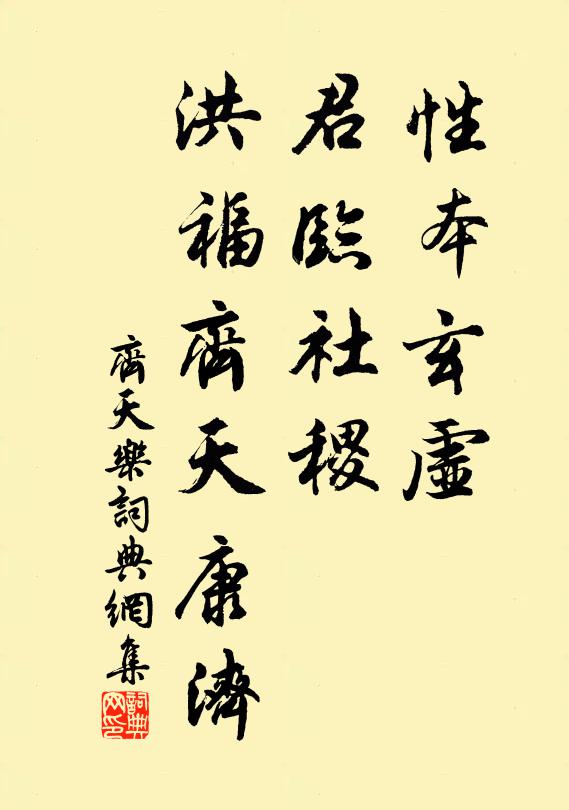 性本玄虛
君臨社稷
洪福齊天康濟
齊天樂詞典網集
詞典网印